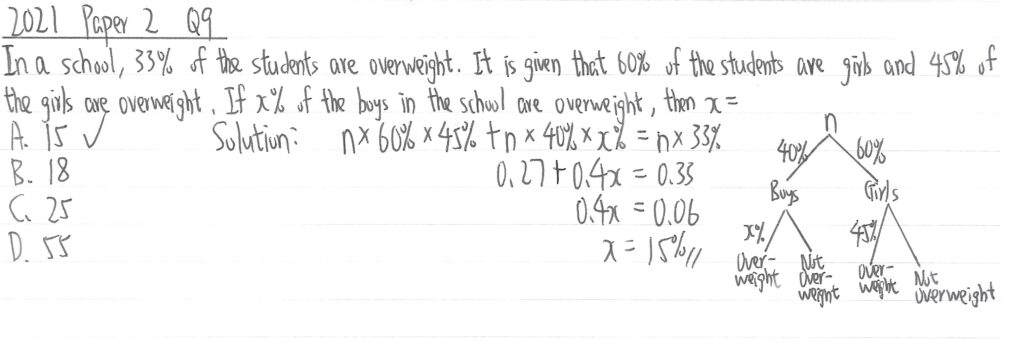 2021 Paper 2 Q9
In a school, 33% of the students are overweight. It is given that 60% of the students are girls and 45% of
the girls are overweight. If x% of the boys in the school are overweight, then x =
A. 15 ✓
B. 18
C. 25
D. 55
Solution: n × 60% × 45% + n × 40% × x% = n × 33%
0.27 + 0.4x = 0.33
0.4x = 0.06
x = 15% //
n
40% 60%
Boys Girls
x% 45%
Over-weight Not Over-weight Over-weight Not overweight